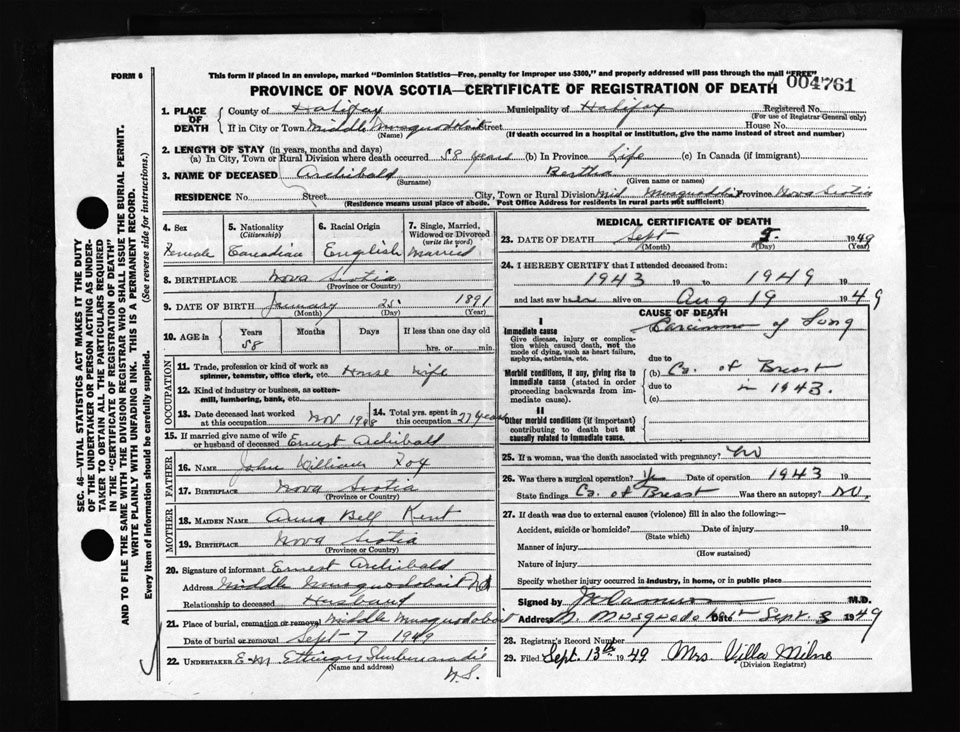 FORM 6
This form if placed in an envelope, marked "Dominion Statistics—Free, penalty for improper use $300," and properly addressed will pass through the mail "FREE"
004761
PROVINCE OF NOVA SCOTIA—CERTIFICATE OF REGISTRATION OF DEATH
1. PLACE OF DEATH County of Halifax Municipality of Halifax Registered No.
(For use of Registrar General only)
If in City or Town Middle Musquodoboit Street House No.
(Name) (If death occurred in a hospital or institution, give the name instead of street and number)
2. LENGTH OF STAY (in years, months and days)
(a) In City, Town or Rural Division where death occurred 58 years (b) In Province Life (c) In Canada (if immigrant)
3. NAME OF DECEASED Archibald Bertha
(Surname) (Given name or names)
RESIDENCE No. Street City, Town or Rural Division Mid Musquodoboit Province Nova Scotia
(Residence means usual place of abode. Post Office Address for residents in rural parts not sufficient)
4. Sex 5. Nationality (Citizenship) 6. Racial Origin 7. Single, Married, Widowed or Divorced (write the word)
Female Canadian English Married
8. BIRTHPLACE Nova Scotia
(Province or Country)
9. DATE OF BIRTH January 25 1891
(Month) (Day) (Year)
10. AGE in Years Months Days If less than one day old
58 hrs. or min.
OCCUPATION
11. Trade, profession or kind of work as spinner, teamster, office clerk, etc. House wife
12. Kind of industry or business, as cotton-mill, lumbering, bank, etc.
13. Date deceased last worked at this occupation Nov 1948 14. Total yrs. spent in this occupation 27 years
15. If married give name of wife or husband of deceased Ernest Archibald
FATHER
16. NAME John William Fox
17. BIRTHPLACE Nova Scotia
(Province or Country)
MOTHER
18. MAIDEN NAME Anna Bell Kent
19. BIRTHPLACE Nova Scotia
(Province or Country)
20. Signature of informant Ernest Archibald
Address Middle Musquodoboit NS
Relationship to deceased Husband
21. Place of burial, cremation or removal Middle Musquodoboit
Date of burial or removal Sept 7 1949
22. UNDERTAKER E.M. Ettinger Shubenacadie
(Name and address)
N.S.
MEDICAL CERTIFICATE OF DEATH
23. DATE OF DEATH Sept 5. 1949
(Month) (Day) (Year)
24. I HEREBY CERTIFY that I attended deceased from:
1943 19 to 1949 19
and last saw her alive on Aug 19 1949
CAUSE OF DEATH
I
Immediate cause Carcinoma of Lung
Give disease, injury or complication which caused death, not the mode of dying, such as heart failure, asphyxia, asthenia, etc.
due to
Morbid conditions, if any, giving rise to immediate cause (stated in order proceeding backwards from immediate cause).
(b) Ca. of Breast
due to in 1943.
(c)
II
Other morbid conditions (if important) contributing to death but not causally related to immediate cause.
25. If a woman, was the death associated with pregnancy? No
26. Was there a surgical operation? Date of operation 1943 19
State findings Ca. of Breast Was there an autopsy? No.
27. If death was due to external causes (violence) fill in also the following:—
Accident, suicide or homicide? Date of injury 19
(State which)
Manner of injury
(How sustained)
Nature of injury
Specify whether injury occurred in industry, in home, or in public place
Signed by M.D.
Address M. Musquodoboit Date Sept. 3 1949
28. Registrar's Record Number
29. Filed Sept. 13th 1949 Mrs. Villa Milne
(Division Registrar)
SEC. 46—VITAL STATISTICS ACT MAKES IT THE DUTY
OF THE UNDERTAKER OR PERSON ACTING AS UNDER-
TAKER TO OBTAIN ALL THE PARTICULARS REQUIRED
IN THE "CERTIFICATE OF REGISTRATION OF DEATH"
AND TO FILE THE SAME WITH THE DIVISION REGISTRAR WHO SHALL ISSUE THE BURIAL PERMIT.
WRITE PLAINLY WITH UNFADING INK. THIS IS A PERMANENT RECORD.
Every item of information should be carefully supplied. (See reverse side for instructions.)